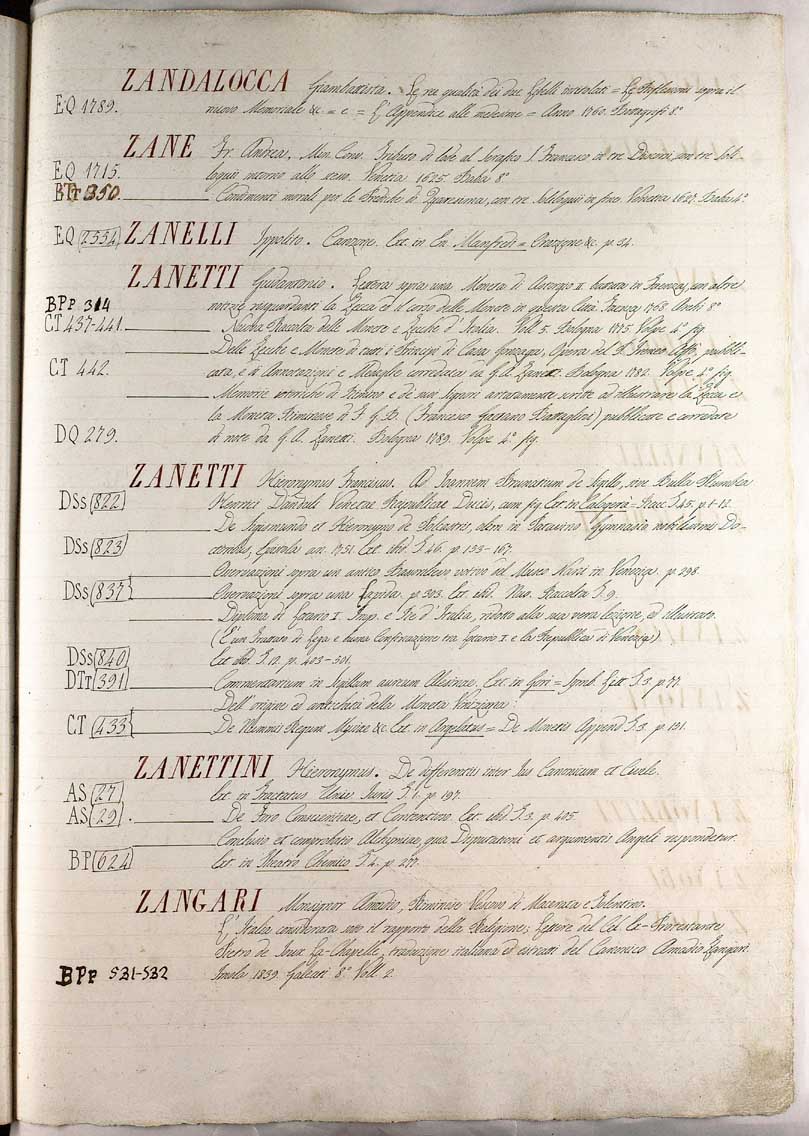 ZANDALOCCA Giambattista. Le ree qualità dei due Libelli intitolati = Le Riflessioni sopra il
EQ 1789. nuovo Memoriale &c. = e = L'Appendice alle medesime = Anno 1760. 8°
ZANE Fr. Andrea, Min. Conv. Tributo di lode al Serafico S. Francesco in tre Discorsi, con tre Sol-
EQ 1715. loquii intorno allo stesso. Venezia 1625. Baba 8°
BTT 350. Condimenti morali per le Prediche di Quaresima, con tre Soliloquii in fine. Venetia 1627. Baba 4°
EQ 2554 ZANELLI Ippolito. Canzone. Ext. in En. Manfredi = Orazione &c. p. 34.
ZANETTI Guidantonio. Lettera sopra una Moneta di Astorgio II. battuta in Faenza, con altre
BPP 314 notizie risguardanti la Zecca ed il corso delle Monete in questa Città. Faenza 1768. Archi 8°
CT 437-441. Nuova Raccolta delle Monete e Zecche d'Italia. Voll. 5. Bologna 1775. Volpe 4° fig.
Delle Zecche e Monete di tutti i Principi di Casa Gonzaga, Opera del P. Ireneo Affò, pubbli-
CT 442. cata, e di Annotazioni e Medaglie corredata da G. A. Zanetti. Bologna 1782. Volpe 4° fig.
Memorie istoriche di Rimino e de' suoi Signori artatamente scritte ad illustrare la Zecca e
la Moneta Riminese di F. G. B. (Francesco Gaetano Battaglini) pubblicate e corredate
DQ 279. di note da G. A. Zanetti. Bologna 1789. Volpe 4° fig.
ZANETTI Hieronymus Franciscus. Ad Joannem Brunatium de Sigillo, sive Bulla Plumbea
DSs 822 Henrici Danduli Venetae Reipublicae Ducis, cum fig. Ext. in Calogerà = Racc. T. 45. p. 1-12.
De Sigismundo et Hieronymo de Polcastris, olim in Patavino Gymnasio nobilissimis Do-
DSs 823 centibus, Epistola an. 1751. Ext. ibid. T. 46. p. 133-167.
Osservazioni sopra un antico Bassorilievo votivo del Museo Nani in Venezia. p. 298.
DSs 837 Osservazioni sopra una Lapida. p. 303. Ext. ibid. Nuo. Raccolta T. 9.
Diploma di Lotario I. Imp. e Re d'Italia, ridotto alla sua vera lezione, ed illustrato.
(È un Trattato di Lega e buona Confinazione tra Lotario I. e la Repubblica di Venezia).
DSs 840 Ext. ibid. T. 12. p. 403-501.
DTT 391 Commentarium in Sigillum aureum Alesinae. Ext. in Gori = Symb. Litt. T. 3. p. 77.
Dell'origine ed antichità della Moneta Veneziana:
CT 433 De Nummis Regum Mysiae &c. Ext. in Argelatus = De Monetis Append. T. 3. p. 131.
ZANETTINI Hieronymus. De differentiis inter Jus Canonicum et Civile.
AS 27 Ext. in Tractatus Univer. Juris T. 1. p. 197.
AS 29. De Foro Conscientiae, et Contentioso. Ext. ibid. T. 3. p. 405.
Conclusio et comprobatio Alchymiae, qua Disputationi et argumentis Angeli respondetur.
BP 624 Ext. in Theatro Chemico T. 4. p. 277.
ZANGARI Monsignor Amadio, Riminese Vescovo di Macerata e Tolentino.
L'Italia considerata sotto il rapporto della Religione; Lettere del Cel. Ex-Protestante
Pietro de Joux La-Chapelle, traduzione italiana ed estratti del Canonico Amadio Zangari.
BPP 531-532 Imola 1839. Galeati 8° Voll. 2.